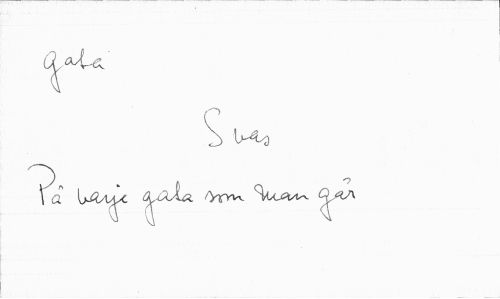 gata
Svas
På varje gata som man går